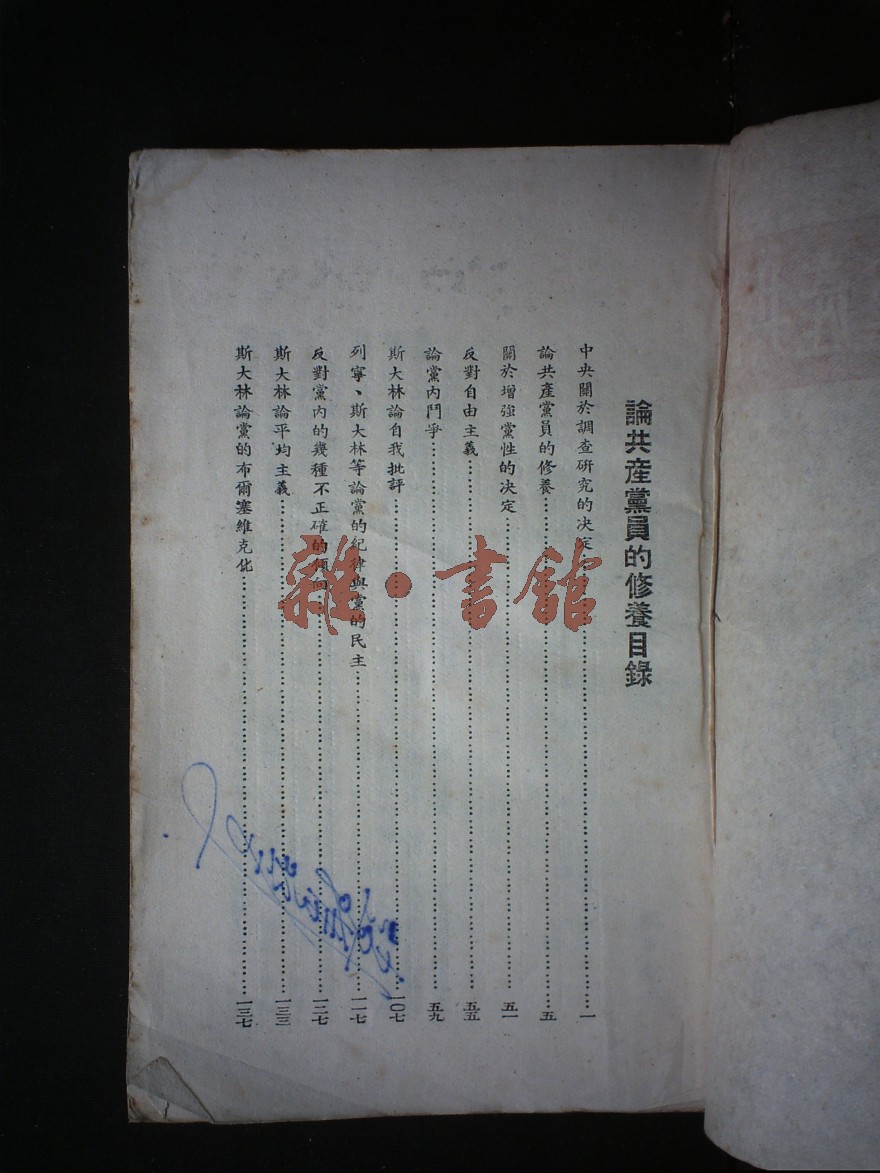 論共產黨員的修養目錄
中央關於調查研究的决定……一
論共產黨員的修養……五
關於增強黨性的决定……五一
反對自由主義……五五
論黨內鬥爭……五九
斯大林論自我批評……一〇七
列寧、斯大林等論黨的紀律與黨的民主……一一七
反對黨內的幾種不正確的傾向……一二七
斯大林論平均主義……一三三
斯大林論黨的布爾塞維克化……一三七
雜·書館